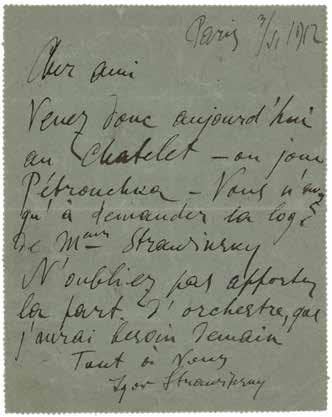 Paris 3/VI 1912
Cher ami
Venez donc aujourd'hui
au Chatelet – on joue
Pétrouchka – Vous n'avez
qu'à demander la loge
de Mme Strawinsky
N'oubliez pas apporter
la part. d'orchestre, que
j'aurai besoin demain
Tout à Vous
Igor Strawinsky